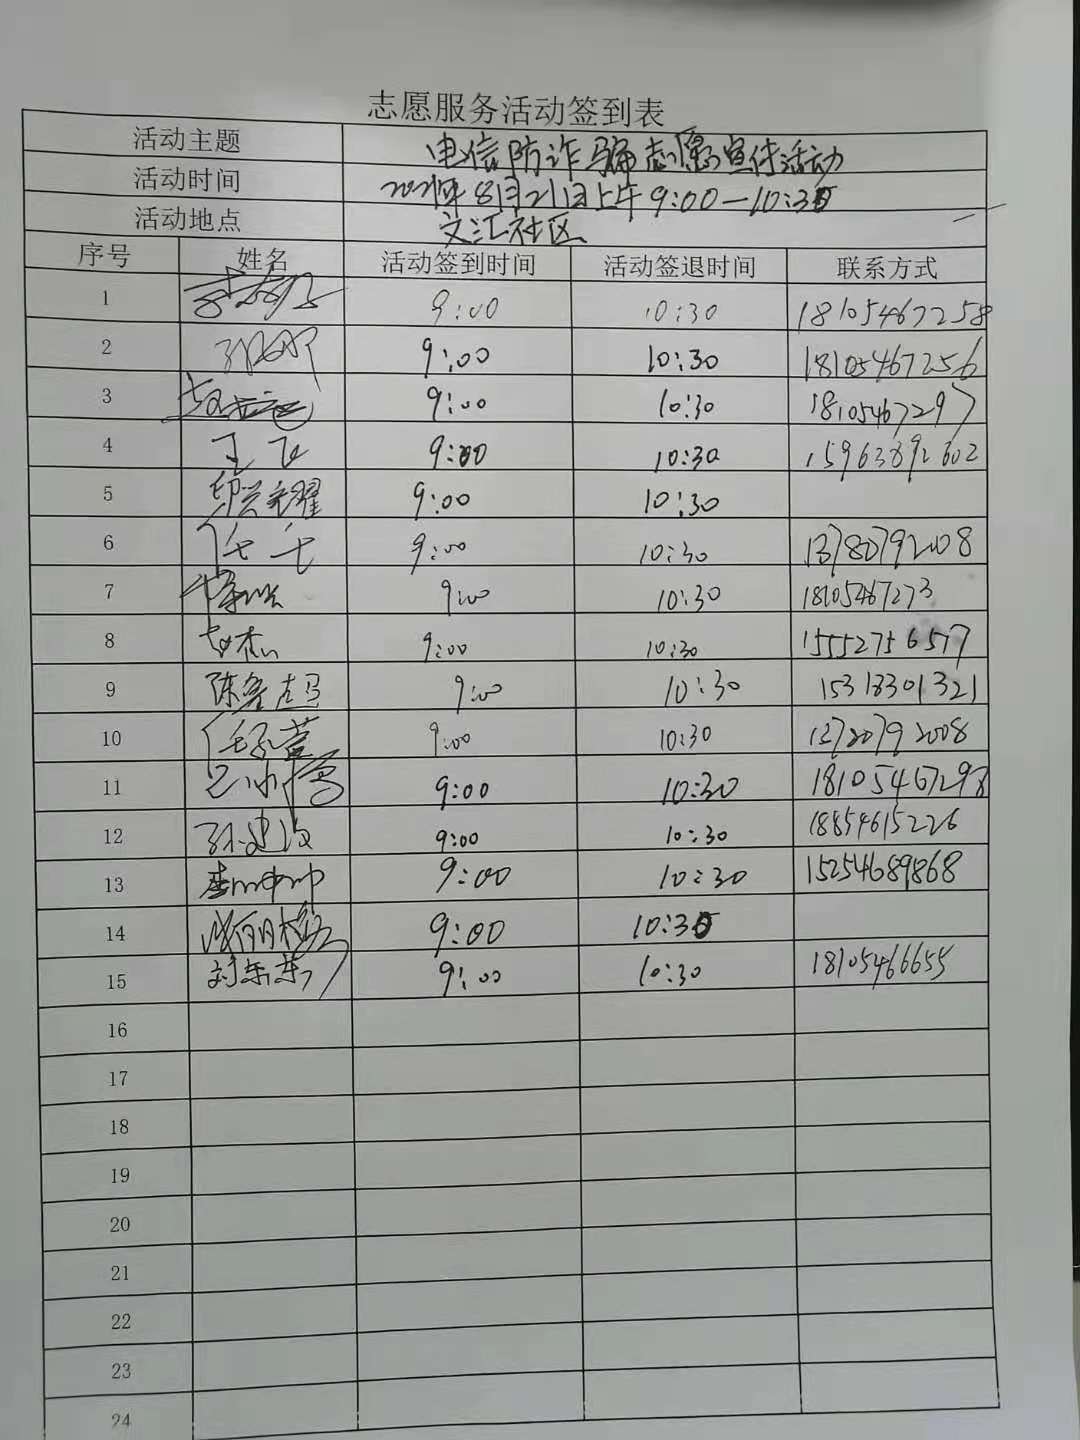 志愿服务活动签到表
活动主题 电信防诈骗志愿宣传活动
活动时间 2021年8月21日上午9:00—10:30
活动地点 文汇社区
序号 姓名 活动签到时间 活动签退时间 联系方式
1 9:00 10:30 18105467258
2 9:00 10:30 18105467256
3 9:00 10:30 18105467297
4 王飞 9:00 10:30 15963892602
5 9:00 10:30
6 任七 9:00 10:30 13780792008
7 9:00 10:30 18105467273
8 赵杰 9:00 10:30 15552756577
9 9:00 10:30 15318301321
10 9:00 10:30 13720792008
11 9:00 10:30 18105467298
12 孙建波 9:00 10:30 18854615226
13 9:00 10:30 15254689868
14 9:00 10:30
15 刘东东 9:00 10:30 18105466655
16
17
18
19
20
21
22
23
24